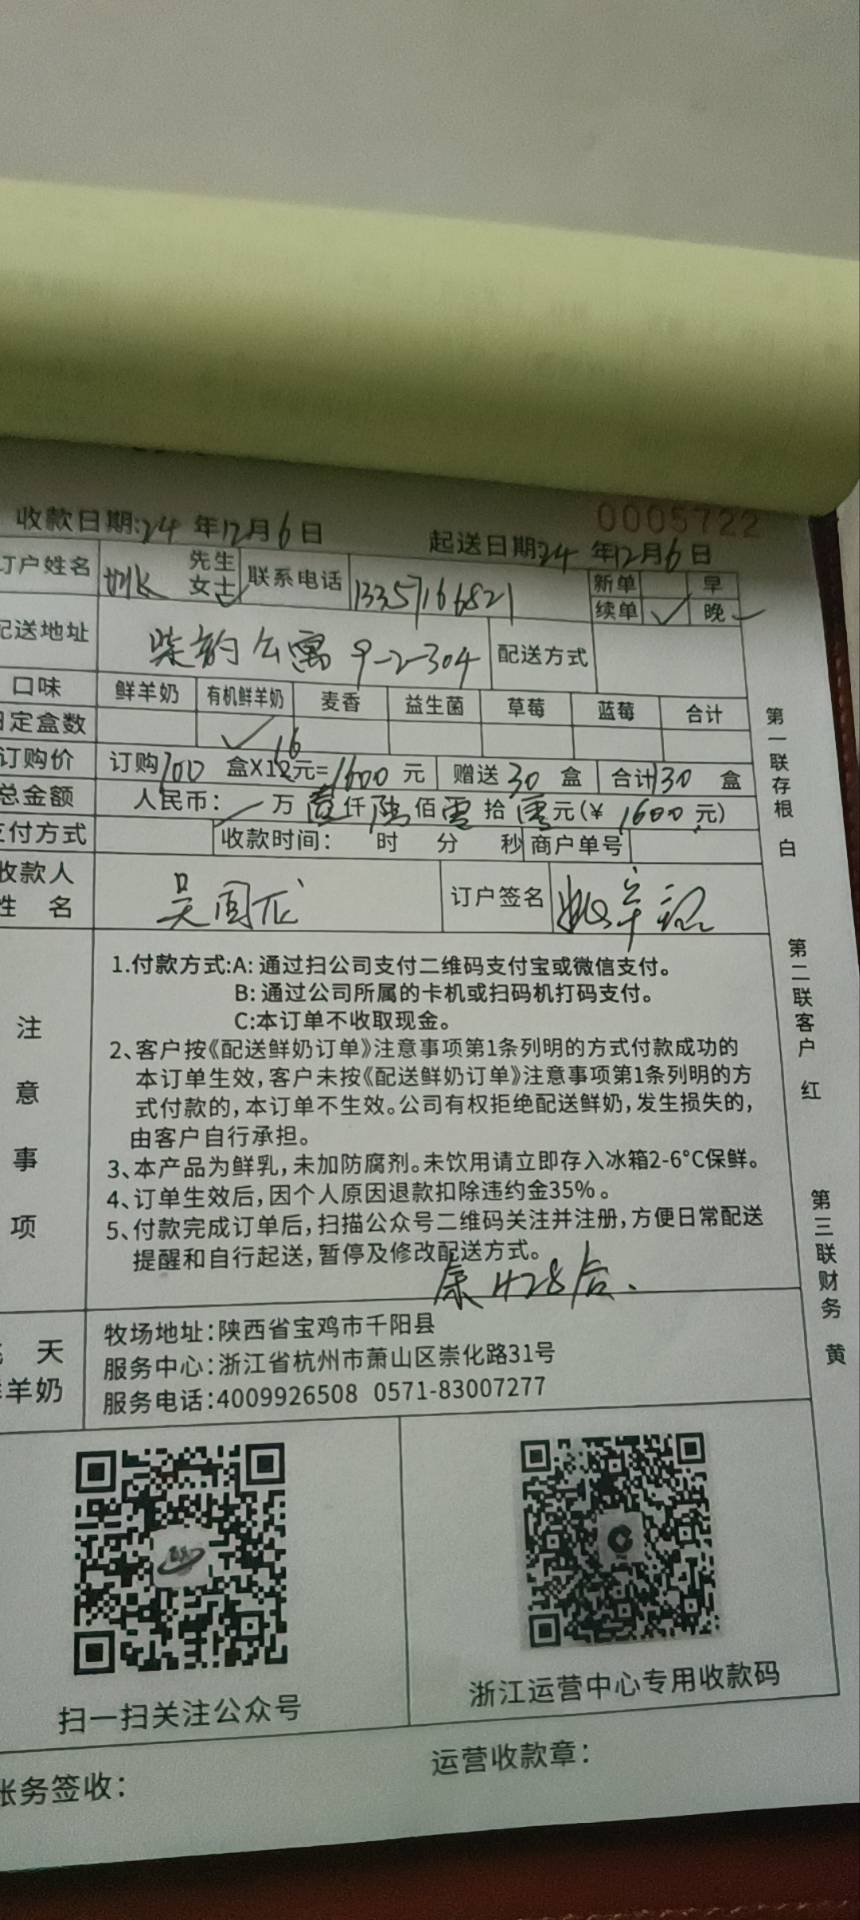 0005722
收款日期:24年12月6日 起送日期24年12月6日
订户姓名 姚 先生 女士 联系电话 13357166821 新单 早
续单 ✓ 晚 ✓
配送地址 公寓 9-2-304 配送方式
口味 鲜羊奶 有机鲜羊奶 麦香 益生菌 草莓 蓝莓 合计
日定盒数 ✓
订购价 订购100盒X12元=1600元 赠送30盒 合计130盒
16
总金额 人民币: 万壹仟陆佰零拾零元(¥ 1600元)
支付方式 收款时间: 时 分 秒 商户单号
收款人
姓 名 吴国 订户签名 姚
注意事项
1.付款方式:A: 通过扫公司支付二维码支付宝或微信支付。
B: 通过公司所属的卡机或扫码机打码支付。
C:本订单不收取现金。
2、客户按《配送鲜奶订单》注意事项第1条列明的方式付款成功的
本订单生效,客户未按《配送鲜奶订单》注意事项第1条列明的方
式付款的,本订单不生效。公司有权拒绝配送鲜奶,发生损失的,
由客户自行承担。
3、本产品为鲜乳,未加防腐剂。未饮用请立即存入冰箱2-6°C保鲜。
4、订单生效后,因个人原因退款扣除违约金35%。
5、付款完成订单后,扫描公众号二维码关注并注册,方便日常配送
提醒和自行起送,暂停及修改配送方式。
余428合.
天
羊奶
牧场地址:陕西省宝鸡市千阳县
服务中心:浙江省杭州市萧山区崇化路31号
服务电话:4009926508 0571-83007277
扫一扫关注公众号
浙江运营中心专用收款码
账务签收:
运营收款章:
第一联存根 白
第二联客户 红
第三联财务 黄